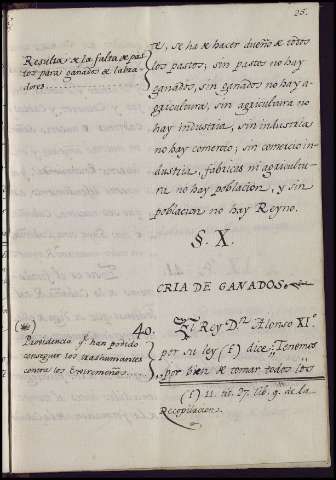 25.
te, se ha de hacer dueño de todos
los pastos; sin pastos no hay
ganados, sin ganados no hay a-
gricultura, sin agricultura no
hay industria, sin industria
no hay comercio; sin comercio in-
dustria, fabricas ni agricultu-
ra no hay poblacion, y sin
poblacion no hay Reyno.
Resulta de la falta de pas-
tos para ganados de labra-
dores
§. X.
CRIA DE GANADOS.
40. El Rey Dn. Alonso XIº
por su ley (f) dice: "Tenemos
"por bien de tomar todos los
Providencia q.e han podido
conseguir los trashumantes
contra los Extremeños
(f) 11. tit. 27. lib. 9. de la
Recopilacion.